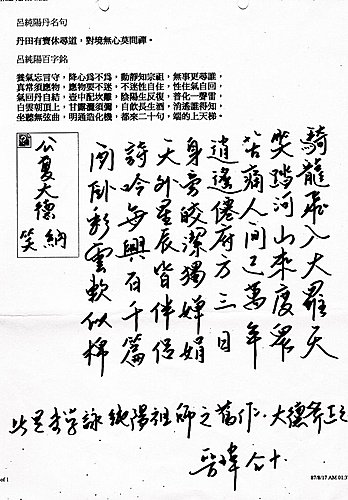 呂純陽丹名句
丹田有寶休尋道，對境無心莫問禪。
呂純陽百字銘
養氣忘言守，降心為不為，動靜知宗祖，無事更尋誰，
真常須應物，應物要不迷，不迷性自住，性住氣自回，
氣回丹自結，壺中配坎離，陰陽生反復，普化一聲雷，
白雲朝頂上，甘露灑須彌，自飲長生酒，逍遙誰得知，
坐聽無弦曲，明通造化機，都來二十句，端的上天梯。
公夏大德
笑納
騎龍飛入大羅天
笑踏河山來度眾
苦痛人間已萬年
逍遙僊府方三日
身旁皎潔獨嬋娟
天外星辰皆伴侶
詩吟每興百千篇
閑臥彩雲軟似棉
此是末學詠純陽祖師之舊作．大德斧正之
合十
of 1
87/8/17 AM 01: